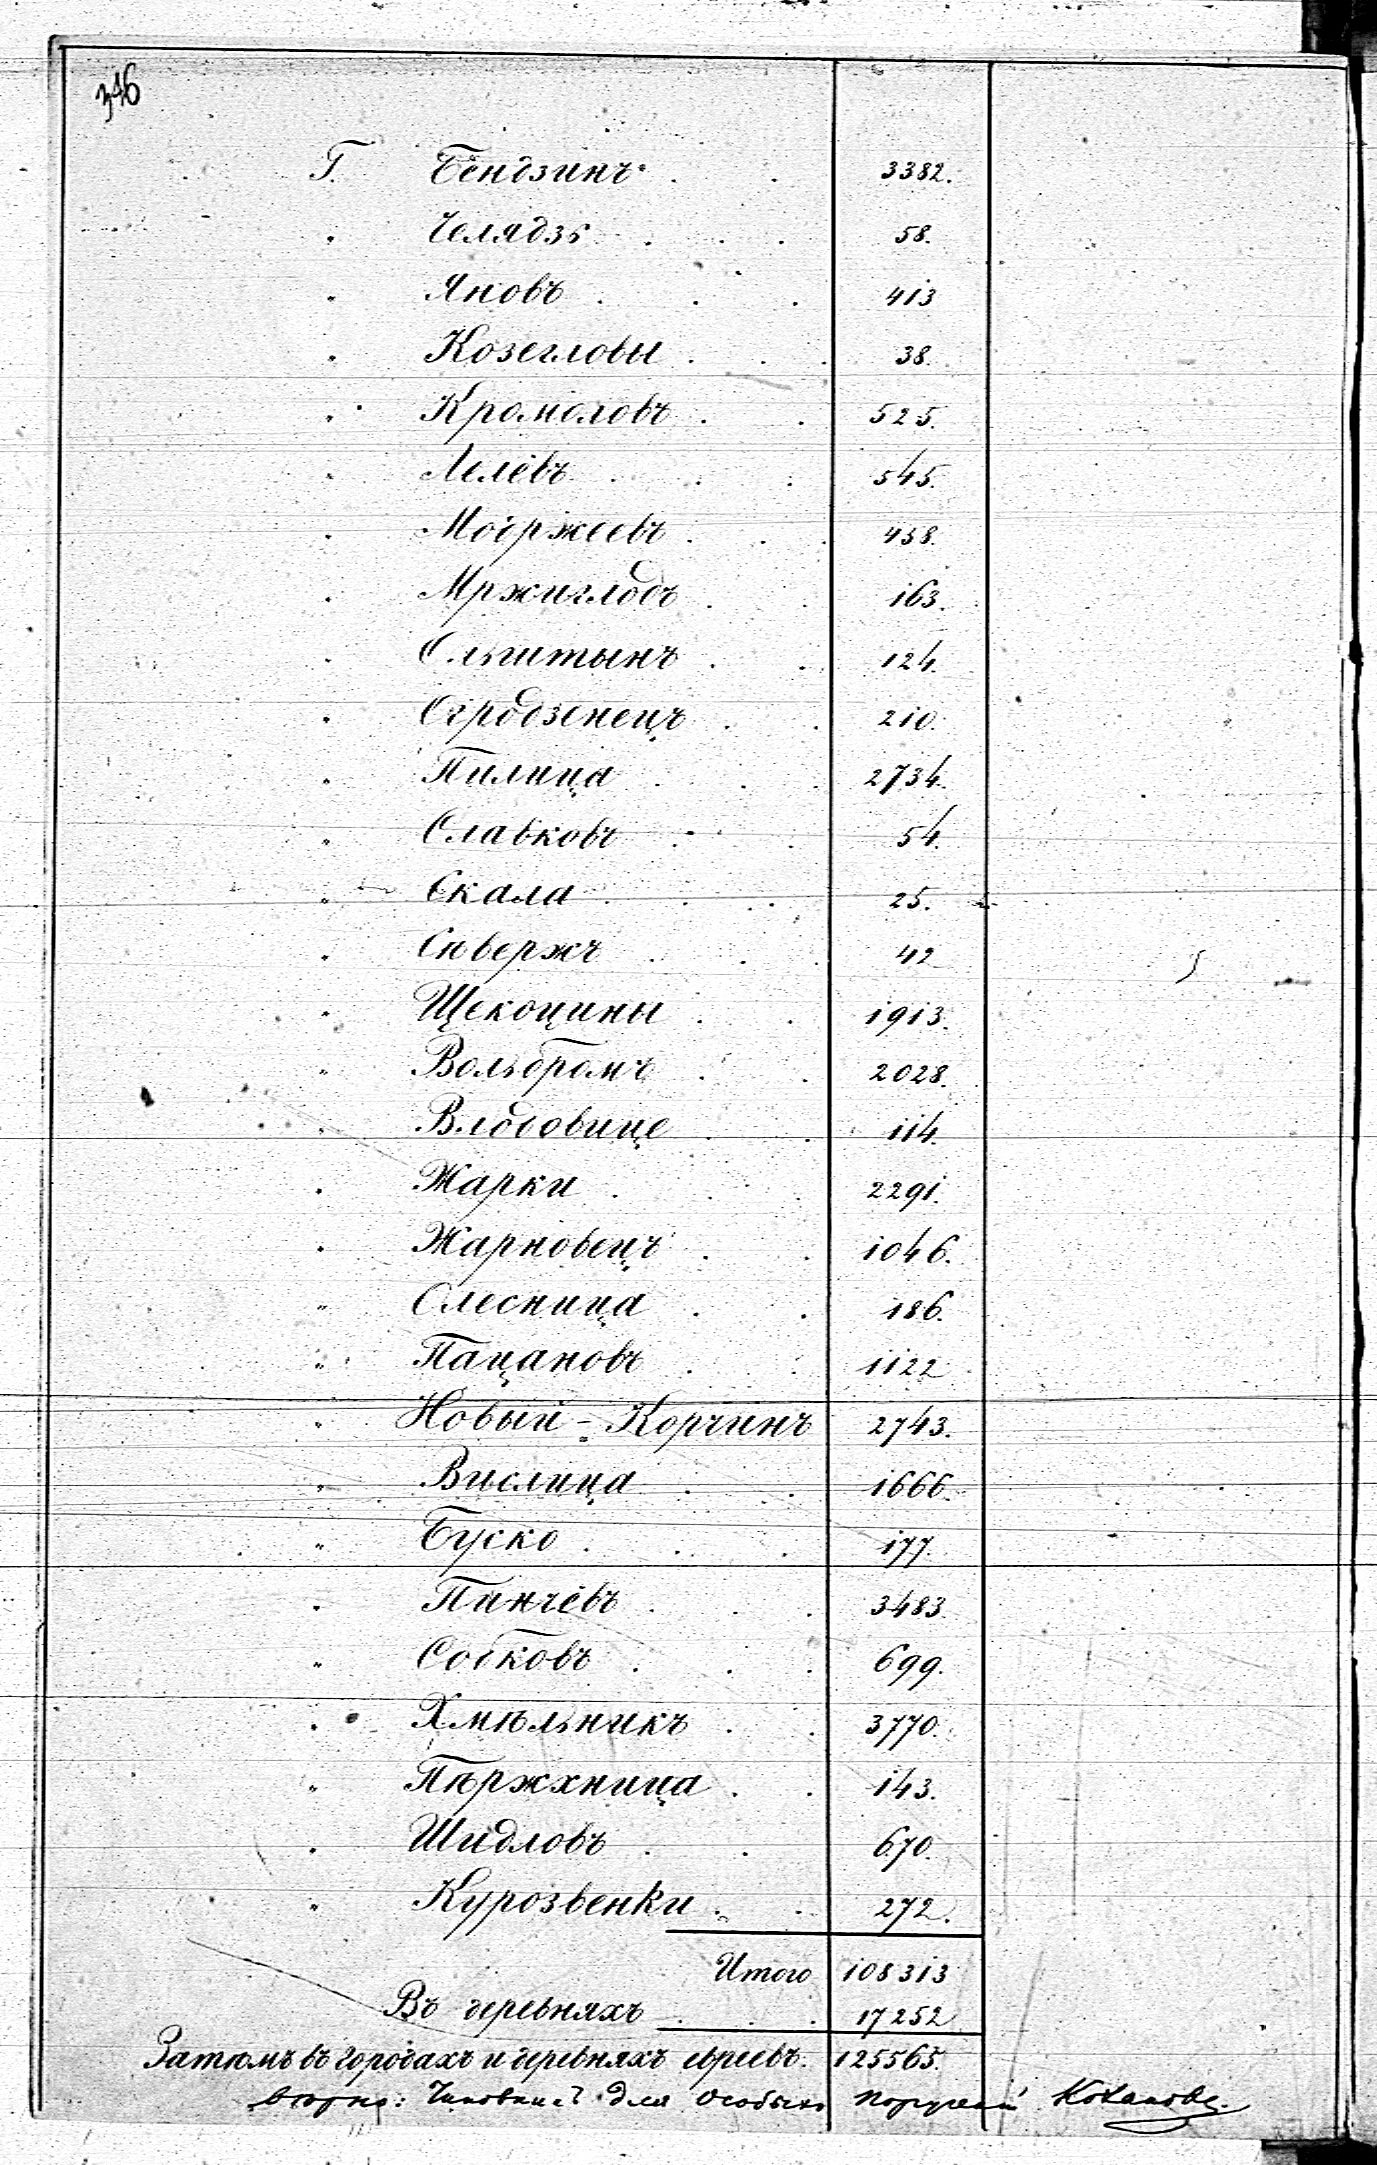 346
Г. Бендзинъ . . 3382.
" Челядзь . . . 58.
" Яновъ . . . 413
" Козегловы . . . 38.
" Кромоловъ . . 525.
" Лелёвъ . . . 545.
" Модржеевъ . . . 458.
" Мржиглодъ . . 163.
" Ольштынъ . . 124.
" Огродзенецъ . . 210.
" Пилица . . . 2734.
" Славковъ . . 54.
" Скала . . . 25.
" Сѣвержъ . . . 42
" Щекоцины . . 1913.
" Вольбромъ . . 2028.
" Влодовице . . 114.
" Жарки . . . 2291.
" Жарновецъ . . 1046.
" Олесница . . 186.
" Пацановъ . . 1122
" Новый-Корчинъ 2743.
" Вислица . . 1666.
" Буско . . . 177.
" Пинчёвъ . . . 3483
" Собковъ . . . 699.
" Хмѣльникъ . . 3770.
" Пѣржхница . . 143.
" Шидловъ . . 670.
" Курозвенки . . 272.
Итого 108313
Въ деревняхъ . . . 17252
Затѣмъ въ городахъ и деревняхъ евреевъ. 125565.
вѣрно: Чиновникъ для особыхъ порученій